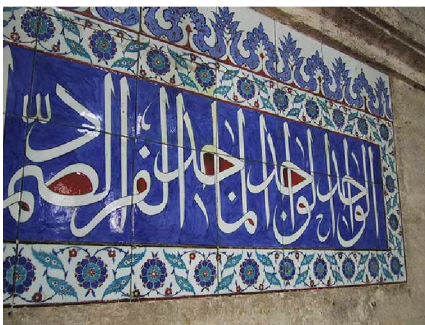 الواحد الواجد الماجد الفرد الصمد